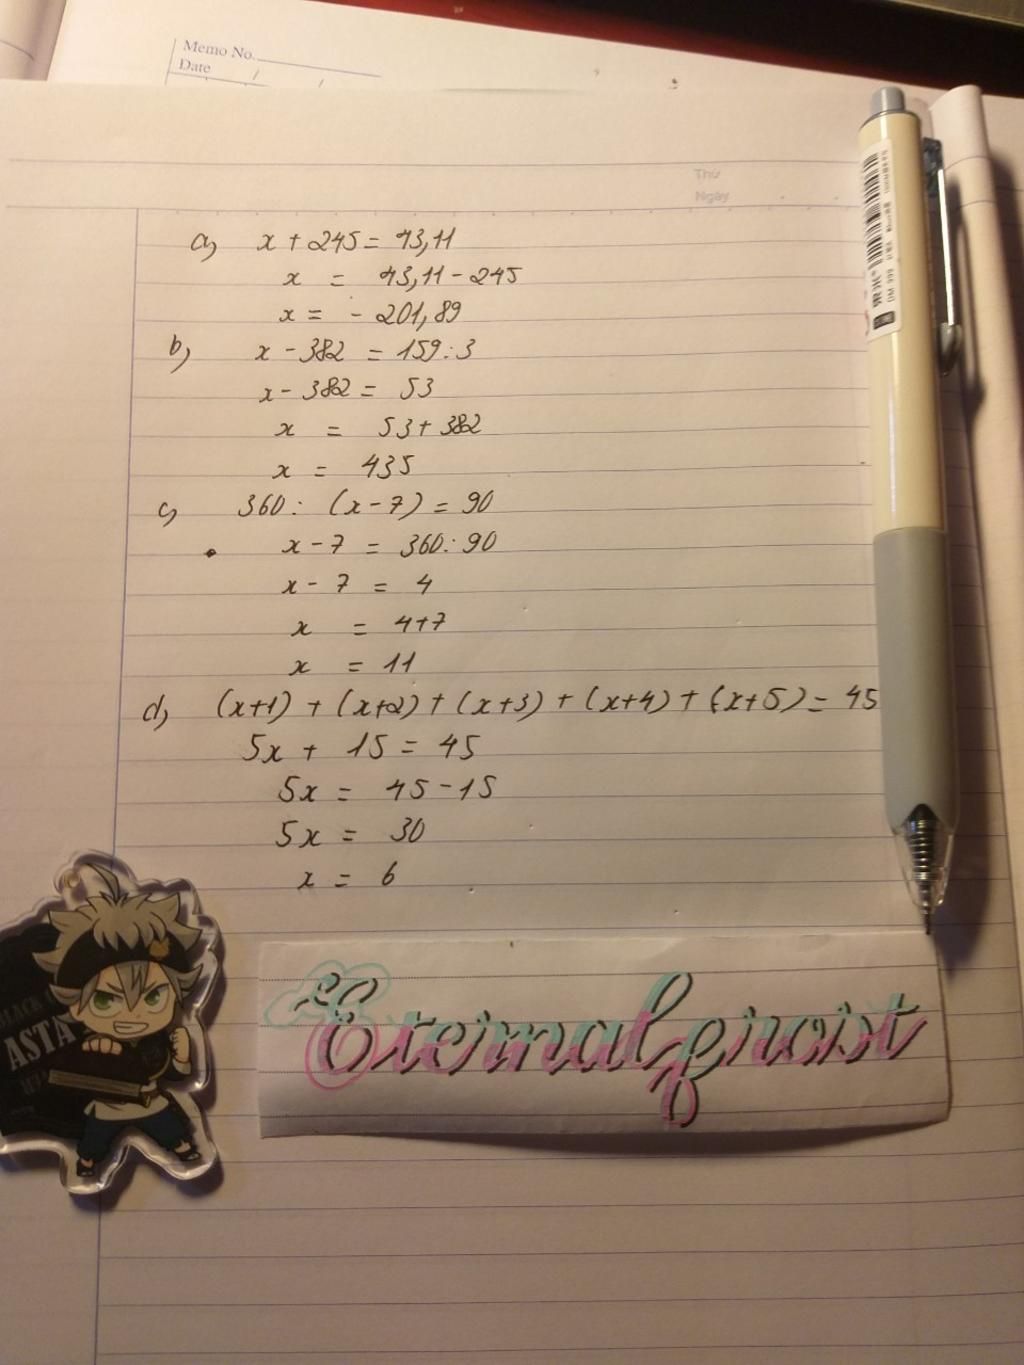 Memo No.
Date / /
Thứ
Ngày
a, x + 245 = 43,11
x = 43,11 - 245
x = - 201,89
b, x - 382 = 159 : 3
x - 382 = 53
x = 53 + 382
x = 435
c, 360 : (x - 7) = 90
x - 7 = 360 : 90
x - 7 = 4
x = 4+7
x = 11
d, (x+1) + (x+2) + (x+3) + (x+4) + (x+5) = 45
5x + 15 = 45
5x = 45 - 15
5x = 30
x = 6
BLACK
ASTA
Eternalfrost